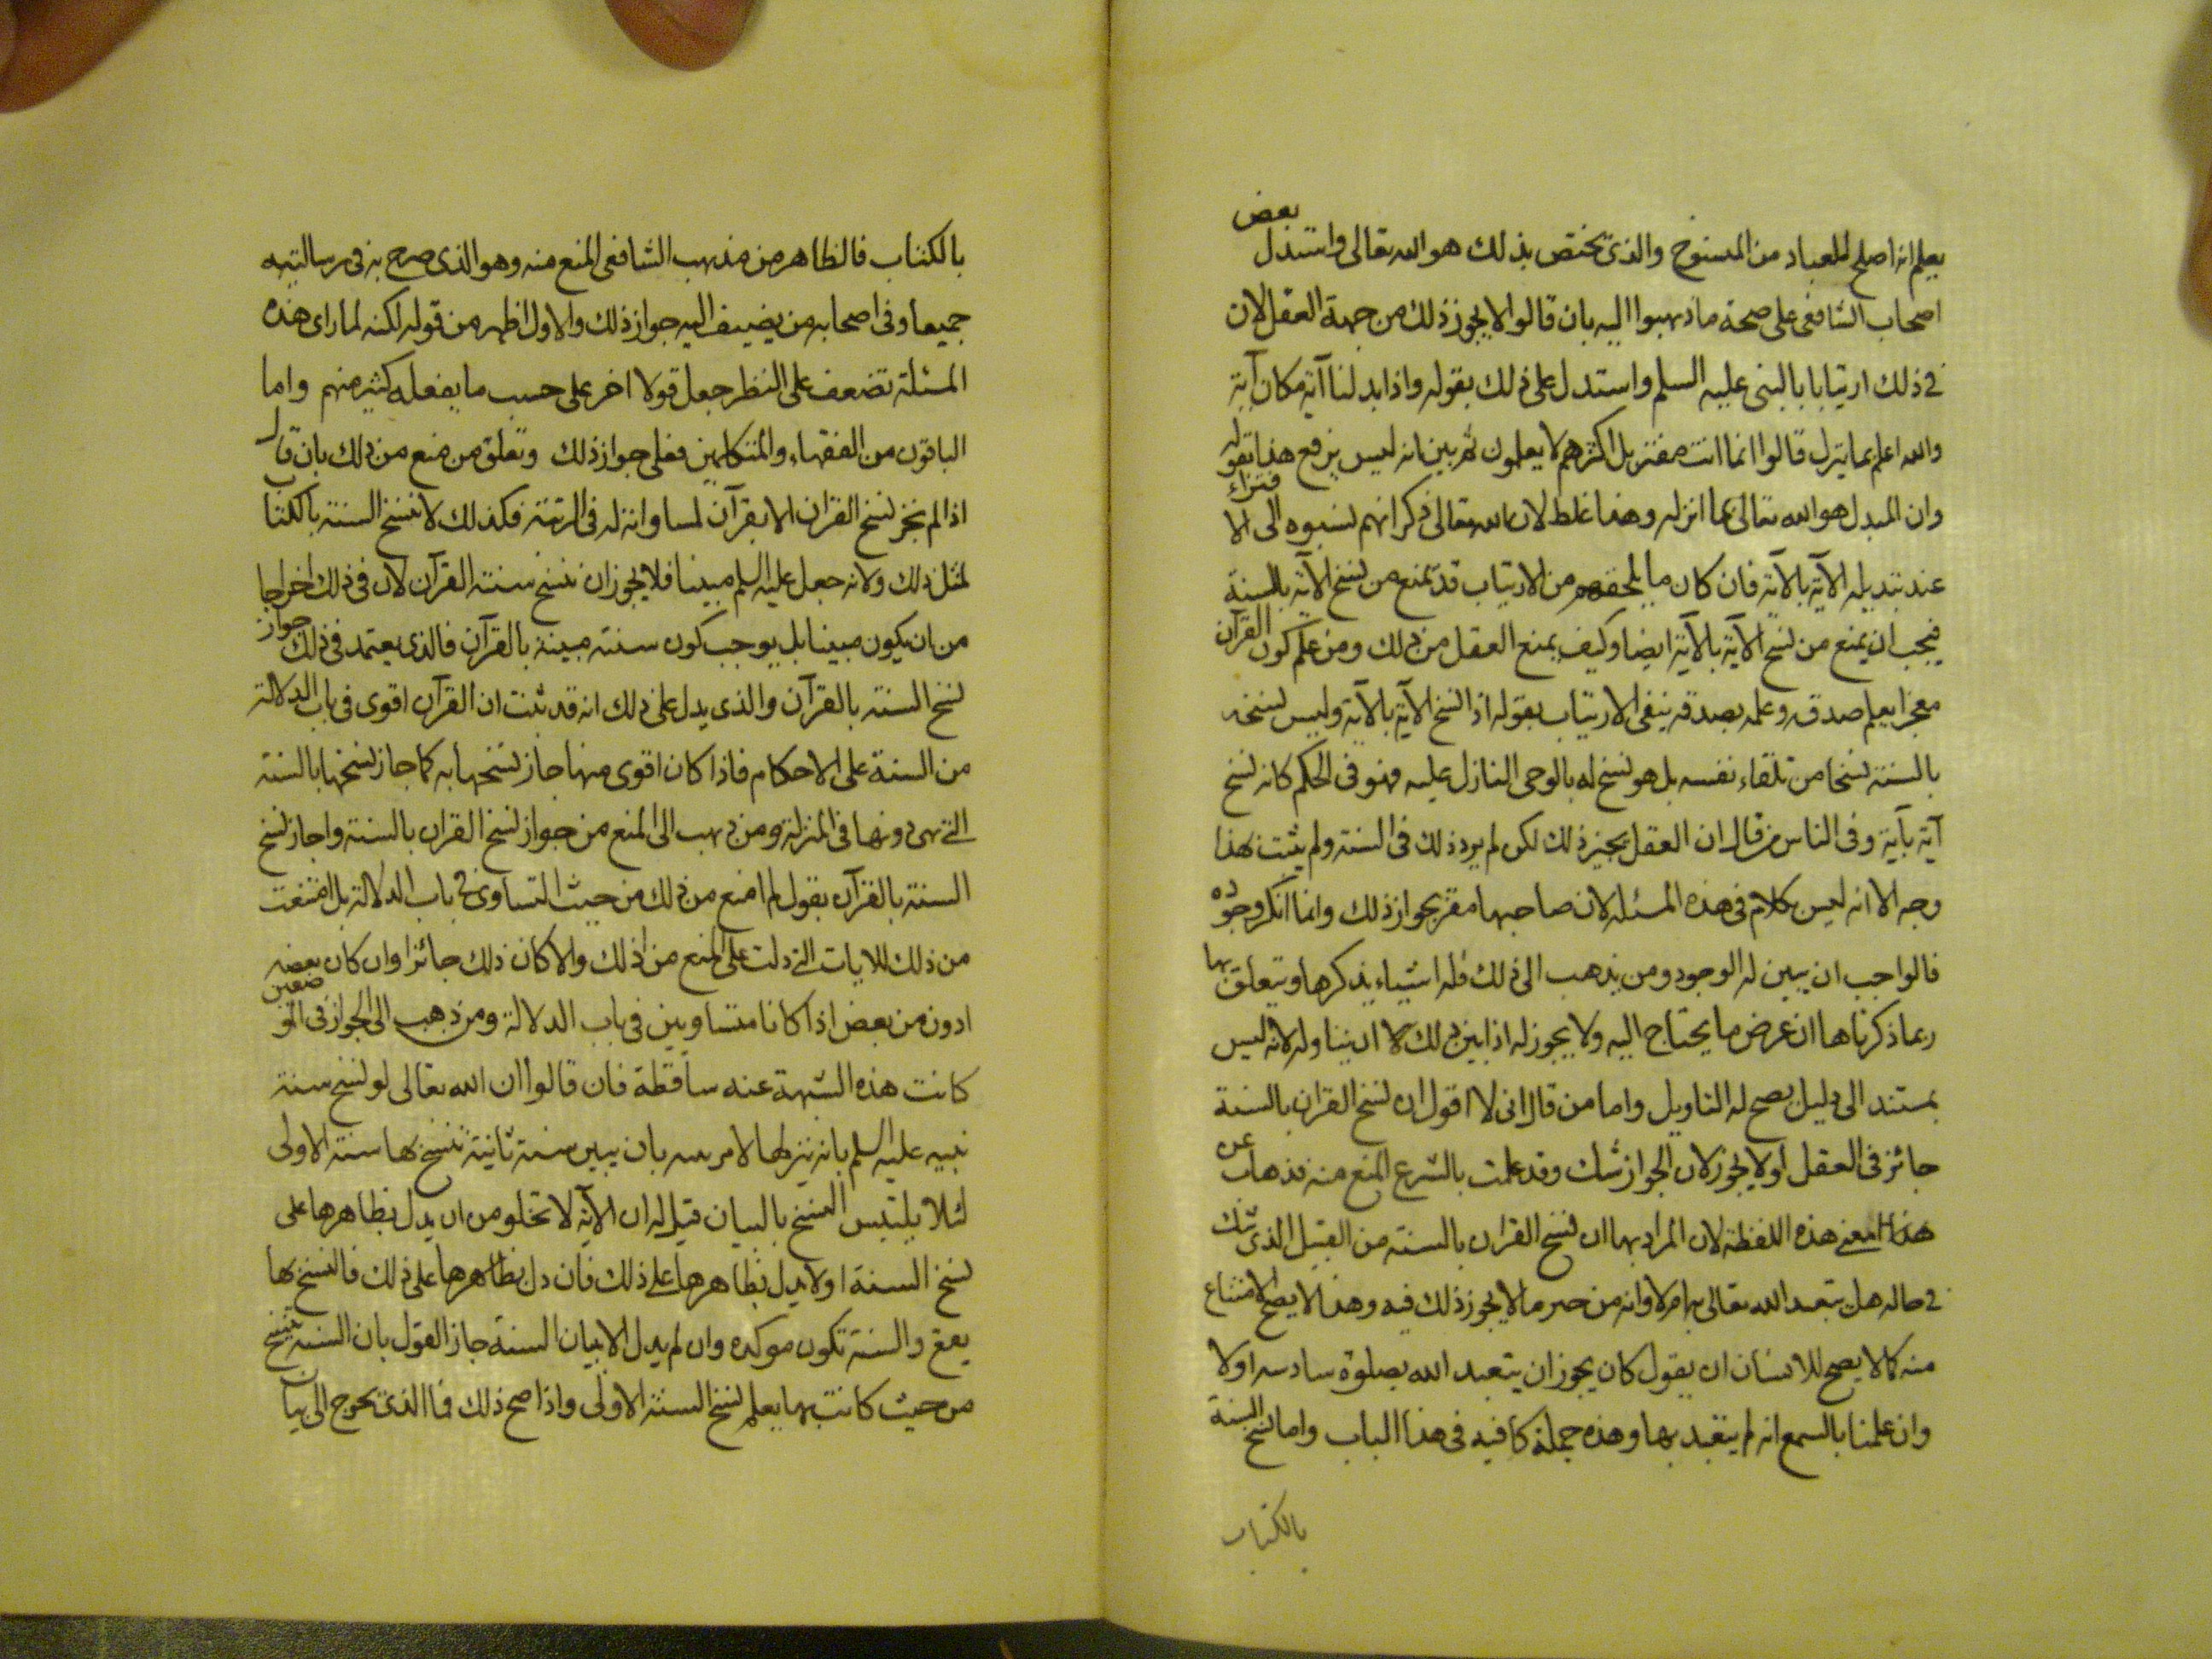 يعلم انه اصلح للعباد من المنسوخ والذي يختص بذلك هو الله تعالى واستدل بعض
اصحاب الشافعي على صحة ما ذهبوا اليه بان قالوا لا يجوز ذلك من جهة العقل لان
في ذلك ارتيابا بالنبي عليه السلم واستدل على ذلك بقوله واذا بدلنا آية مكان آية
والله اعلم بما ينزل قالوا انما انت مفتر بل اكثرهم لا يعلمون ثم بين انه ليس يرفع هذا بقوله
وان المبدل هو الله تعالى بما انزله وهذا غلط لان الله تعالى ذكر انهم نسبوه الى الافتراء
عند تبديله الآية بالآية فان كان ما يلحقهم من الارتياب قد يمنع من نسخ الآية بالسنة
فيجب ان يمنع من نسخ الآية بالآية ايضا وكيف يمنع العقل من ذلك ومن علم كون القرآن
معجزا يعلم صدقه وعلمه بصدقه ينفي الارتياب بقوله اذا نسخ الآية بالآية وليس نسخه
بالسنة نسخا من تلقاء نفسه بل هو نسخ له بالوحي النازل عليه فهو في الحكم كانه نسخ
آية بآية وفي الناس من قال ان العقل يجيز ذلك لكن لم يرد ذلك في السنة ولم يثبت لهذا
وجه الا انه ليس بكلام في هذه المسئلة لان صاحبها مقر بجواز ذلك وانما انكر وجوده
فالواجب ان يبين له الوجود ومن يذهب الى ذلك فله اشياء يذكرها ويتعلق بها
ربما ذكرناها ان عرض ما يحتاج اليه ولا يجوز له اذا بين ذلك الا ان يتناوله لانه ليس
بمستند الى دليل يصح له التاويل واما من قال اني لا اقول ان نسخ القران بالسنة
جائز في العقل اولا يجوز لان الجواز شك وقد علمت بالشرع المنع منه فذهاب عن
هذا المعنى هذه اللفظة لان المراد بها ان نسخ القران بالسنة من القبيل الذي شك
في حاله هل يتعبد الله تعالى به ام لا وانه من خبر ما لا يجوز ذلك فيه وهذا لا يصح الامتناع
منه كما لا يصح للانسان ان يقول كان يجوز ان يتعبد الله بصلوة سادسه اولا
وان علمنا بالسمع انه لم يتعبد بها وهذه جملة كافيه في هذا الباب واما نسخ السنة
بالكتاب
بالكتاب فالظاهر من مذهب الشافعي المنع منه وهو الذي صرح به في رسالتيه
جميعا وفي اصحابه من يضيف اليه جواز ذلك والاول اظهر من قوله لكنه لما راى هذه
المسئلة تضعف على النظر جعل قولا اخر على حسب ما يفعله كثير منهم واما
الباقون من الفقهاء والمتكلمين فعلى جواز ذلك وتعلق من منع من ذلك بان قال
اذا لم يجز نسخ القران الا بقرآن لمساواته له في الرتبة فكذلك لا تنسخ السنة بالكتاب
لمثل ذلك ولانه جعل عليه السلم مبينا فلا يجوز ان ينسخ سنته القرآن لان في ذلك اخراجا
من ان يكون مبينا بل يوجب كون سنته مبينة بالقرآن فالذي يعتمد في ذلك جواز
نسخ السنة بالقرآن والذي يدل على ذلك انه قد ثبت ان القرآن اقوى في باب الدلالة
من السنة على الاحكام فاذا كان اقوى منها جاز نسخها به كما جاز نسخها بالسنة
التي هي دونها في المنزلة ومن ذهب الى المنع من جواز نسخ القران بالسنة واجاز نسخ
السنة بالقرآن يقول لم امنع من ذلك من حيث التساوي في باب الدلالة بل امتنعت
من ذلك للايات التي دلت على المنع من ذلك والا كان ذلك جائزا وان كان بعضه
ادون من بعض اذا كانا متساويين في باب الدلالة ومن ذهب الى الجواز في الموضعين
كانت هذه الشبهة عنه ساقطة فان قالوا ان الله تعالى لو نسخ سنة
نبيه عليه السلم بانه ينزلها لامر الله بان يبين سنة ثانية تنسخ لها سنته الاولى
لئلا يلتبس النسخ بالبيان قيل له ان الآية لا تخلو من ان يدل بظاهرها على
نسخ السنة اولا يدل بظاهرها على ذلك فان دل بظاهرها على ذلك فالنسخ بها
يقع والسنة تكون موكده وان لم يدل الا بيان السنة جاز القول بان السنة تنسخ
من حيث كانت بها يعلم نسخ السنة الاولى واذا صح ذلك فما الذي يحوج الى بيان